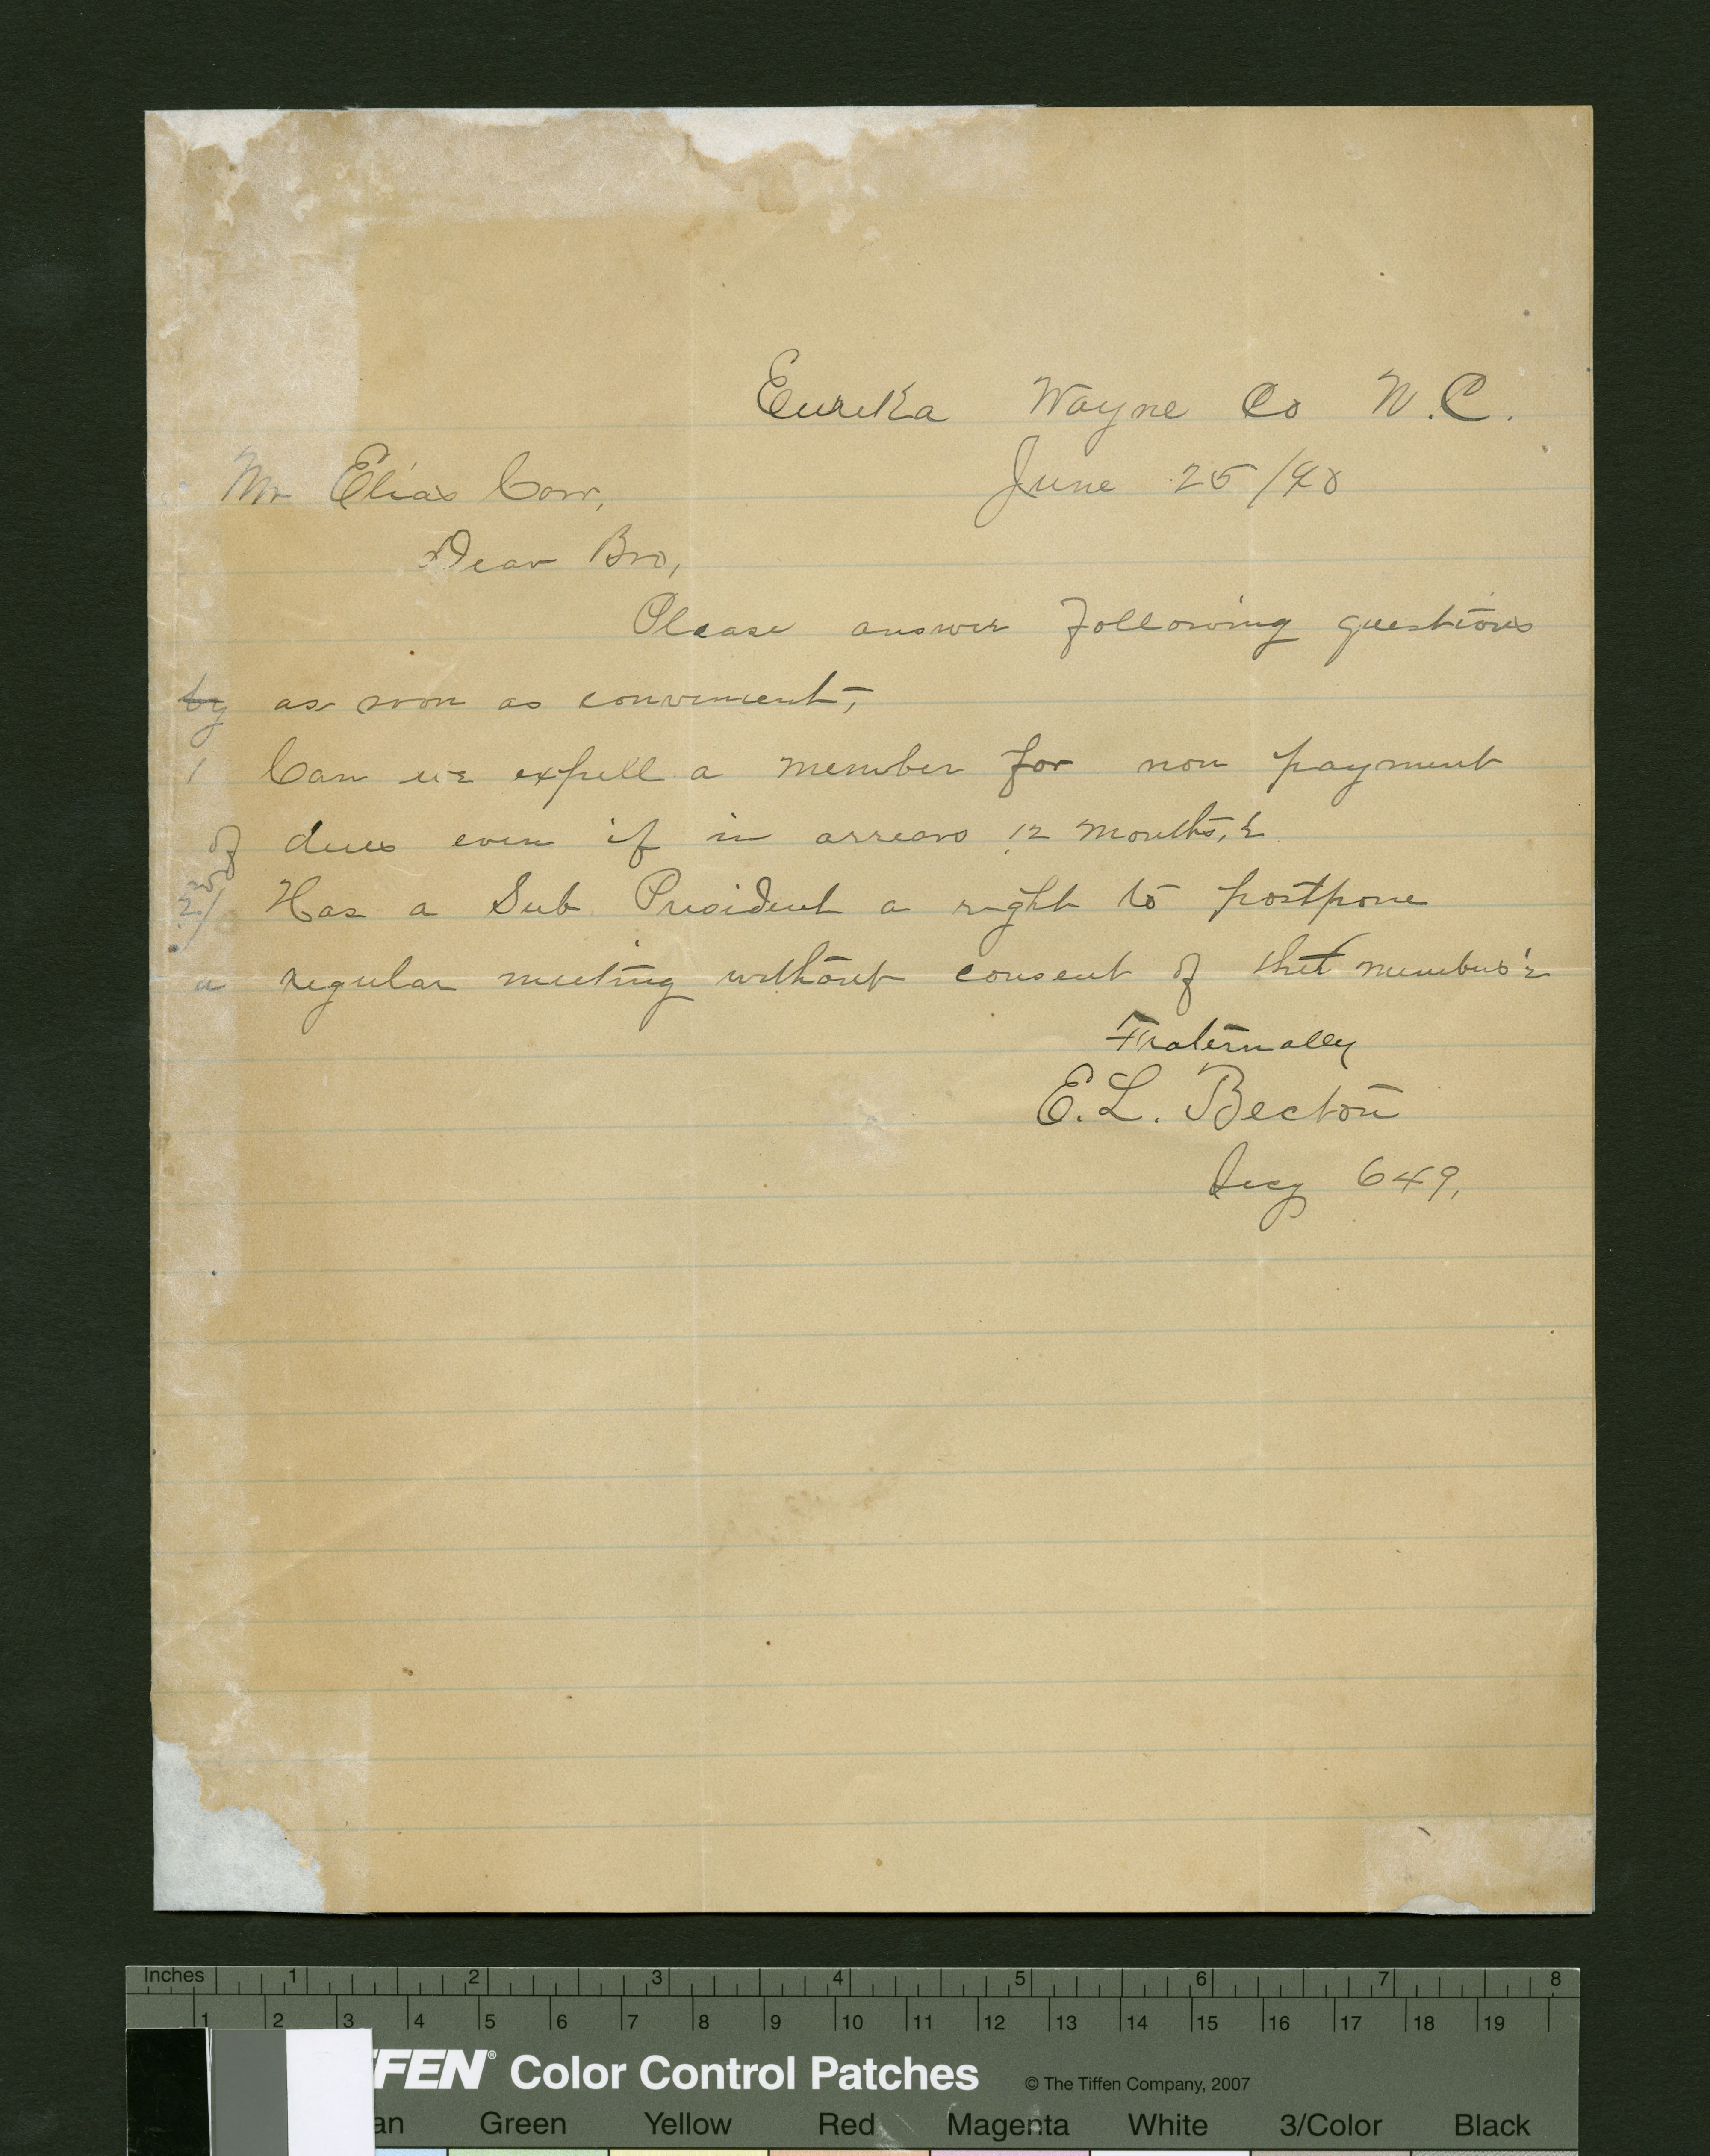 Eureka Wayne Co N.C.
June 25/90
Mr Elias Carr,
Dear Bro,
Please answer following questions
by as soon as convenient,
1 Can we expell a member for non payment
of dues even if in arrears 12 months, &
2nd/ Has a Sub President a right to postpone
a regular meeting without consent of the members?
Fraternally
E.L. Becton
Secy 649,
Inches 1 2 3 4 5 6 7 8
1 2 3 4 5 6 7 8 9 10 11 12 13 14 15 16 17 18 19
FFEN® Color Control Patches © The Tiffen Company, 2007
an Green Yellow Red Magenta White 3/Color Black